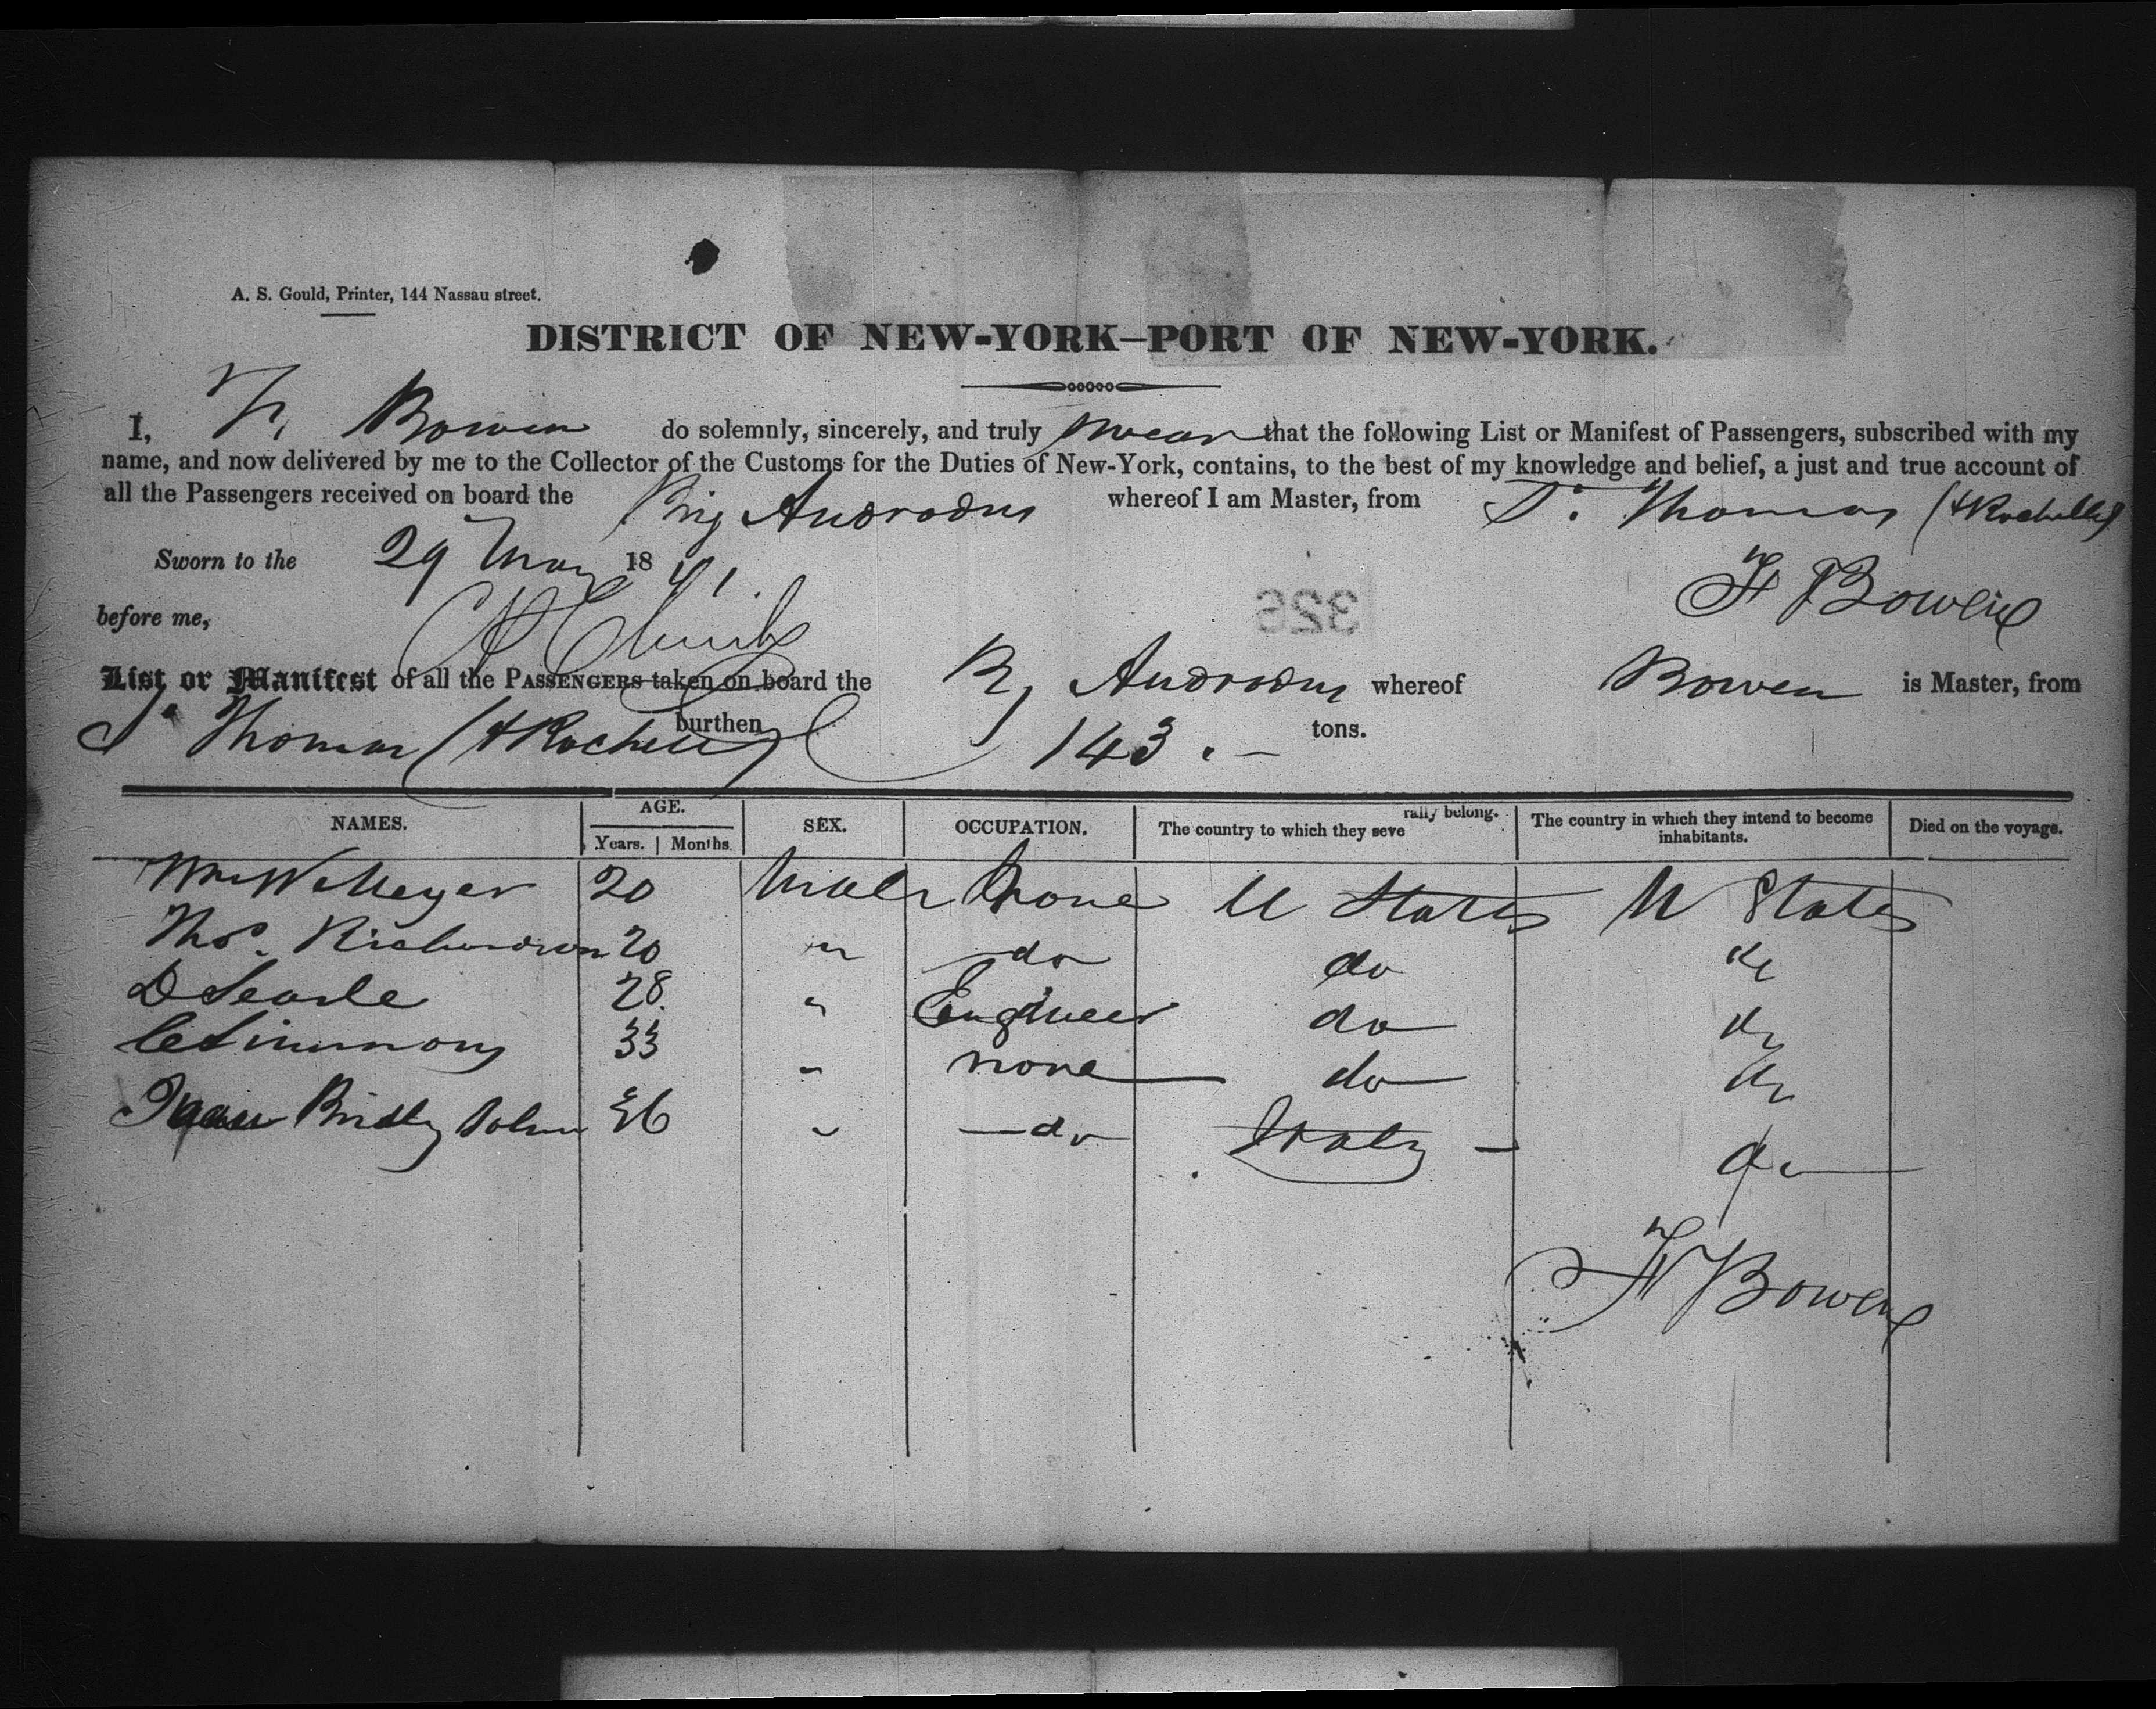 A. S. Gould, Printer, 144 Nassau street.
DISTRICT OF NEW-YORK—PORT OF NEW-YORK.
I, F. Bowen do solemnly, sincerely, and truly swear that the following List or Manifest of Passengers, subscribed with my
name, and now delivered by me to the Collector of the Customs for the Duties of New-York, contains, to the best of my knowledge and belief, a just and true account of
all the Passengers received on board the Brig Androdus whereof I am Master, from St. Thomas (& Rochelle)
Sworn to the 29 May 1841.
F Bowen
before me,
326
List or Manifest of all the PASSENGERS taken on board the Bg Androdus whereof Bowen is Master, from
St Thomas (& Rochelle) burthen 143.— tons.
NAMES. AGE. Years. Months. SEX. OCCUPATION. The country to which they seve rally belong. The country in which they intend to become inhabitants. Died on the voyage.
Wm W Meyer 20 Male None U States U States
Thos. Richardson 20 " do do do
D Searle 28. " Engineer do do
C Simmons 33 " none do do
36 " do Italy do
F Bowen